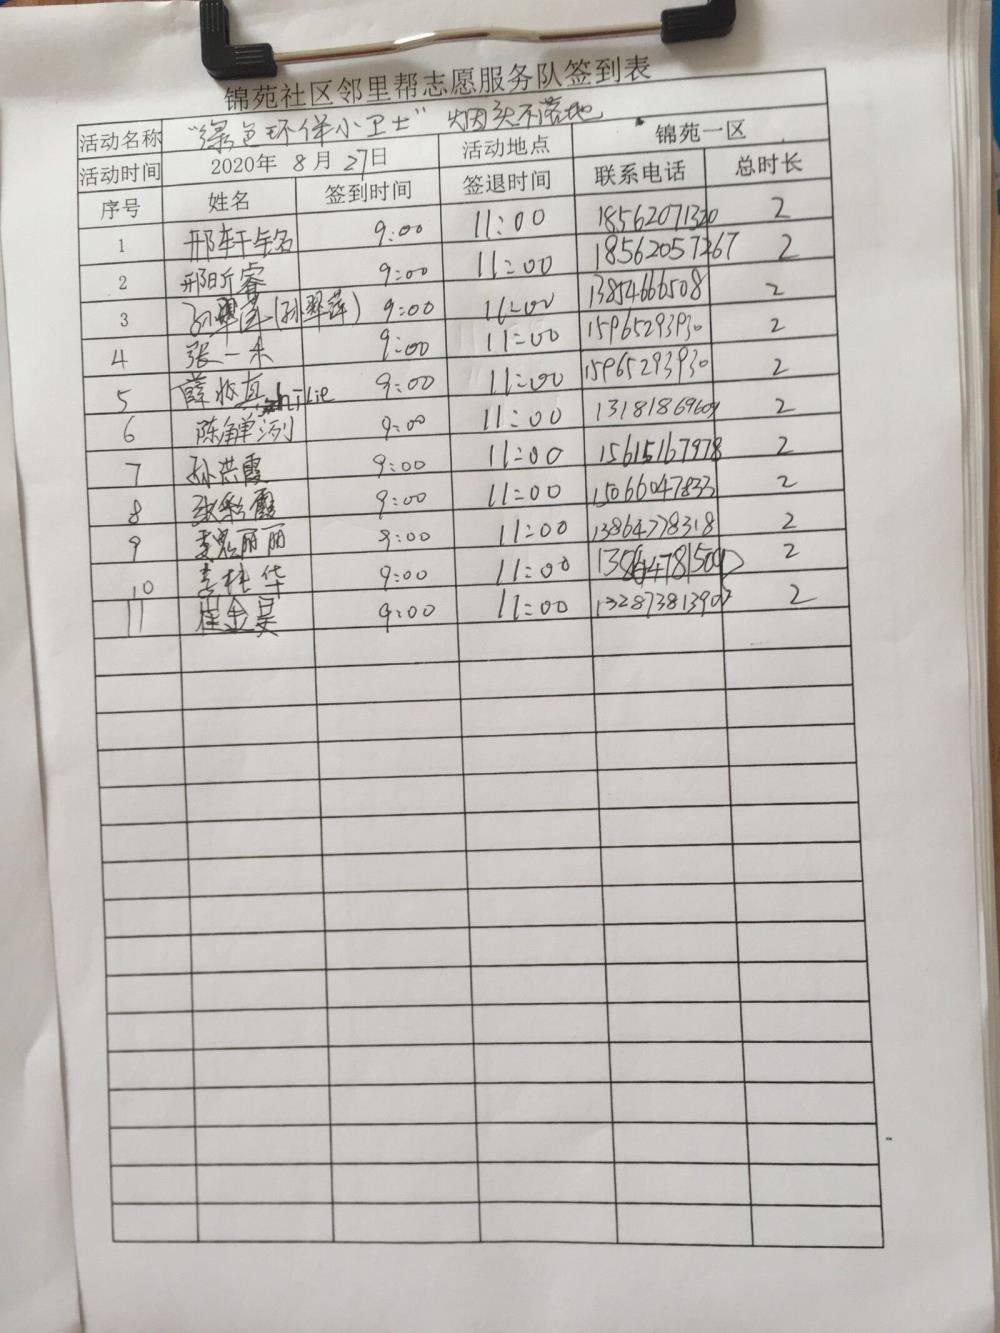 锦苑社区邻里帮志愿服务队签到表
活动名称 "绿色环保小卫士" 烟头不落地
活动时间 2020年 8 月 27日 活动地点 锦苑一区
序号 姓名 签到时间 签退时间 联系电话 总时长
1 邢轩铭 9:00 11:00 18562071320 2
2 邢昕睿 9:00 11:00 18562057267 2
3 孙翠萍(孙翠萍) 9:00 11:00 13854666508 2
4 张一未 9:00 11:00 15965293930 2
5 薛 9:00 11:00 15965293930 2
6 陈 9:00 11:00 1318186960 2
7 孙洪霞 9:00 11:00 15615167978 2
8 张彩霞 9:00 11:00 15066047833 2
9 丽丽 9:00 11:00 13864778318 2
10 李桂华 9:00 11:00 2
11 崔金昊 9:00 11:00 2